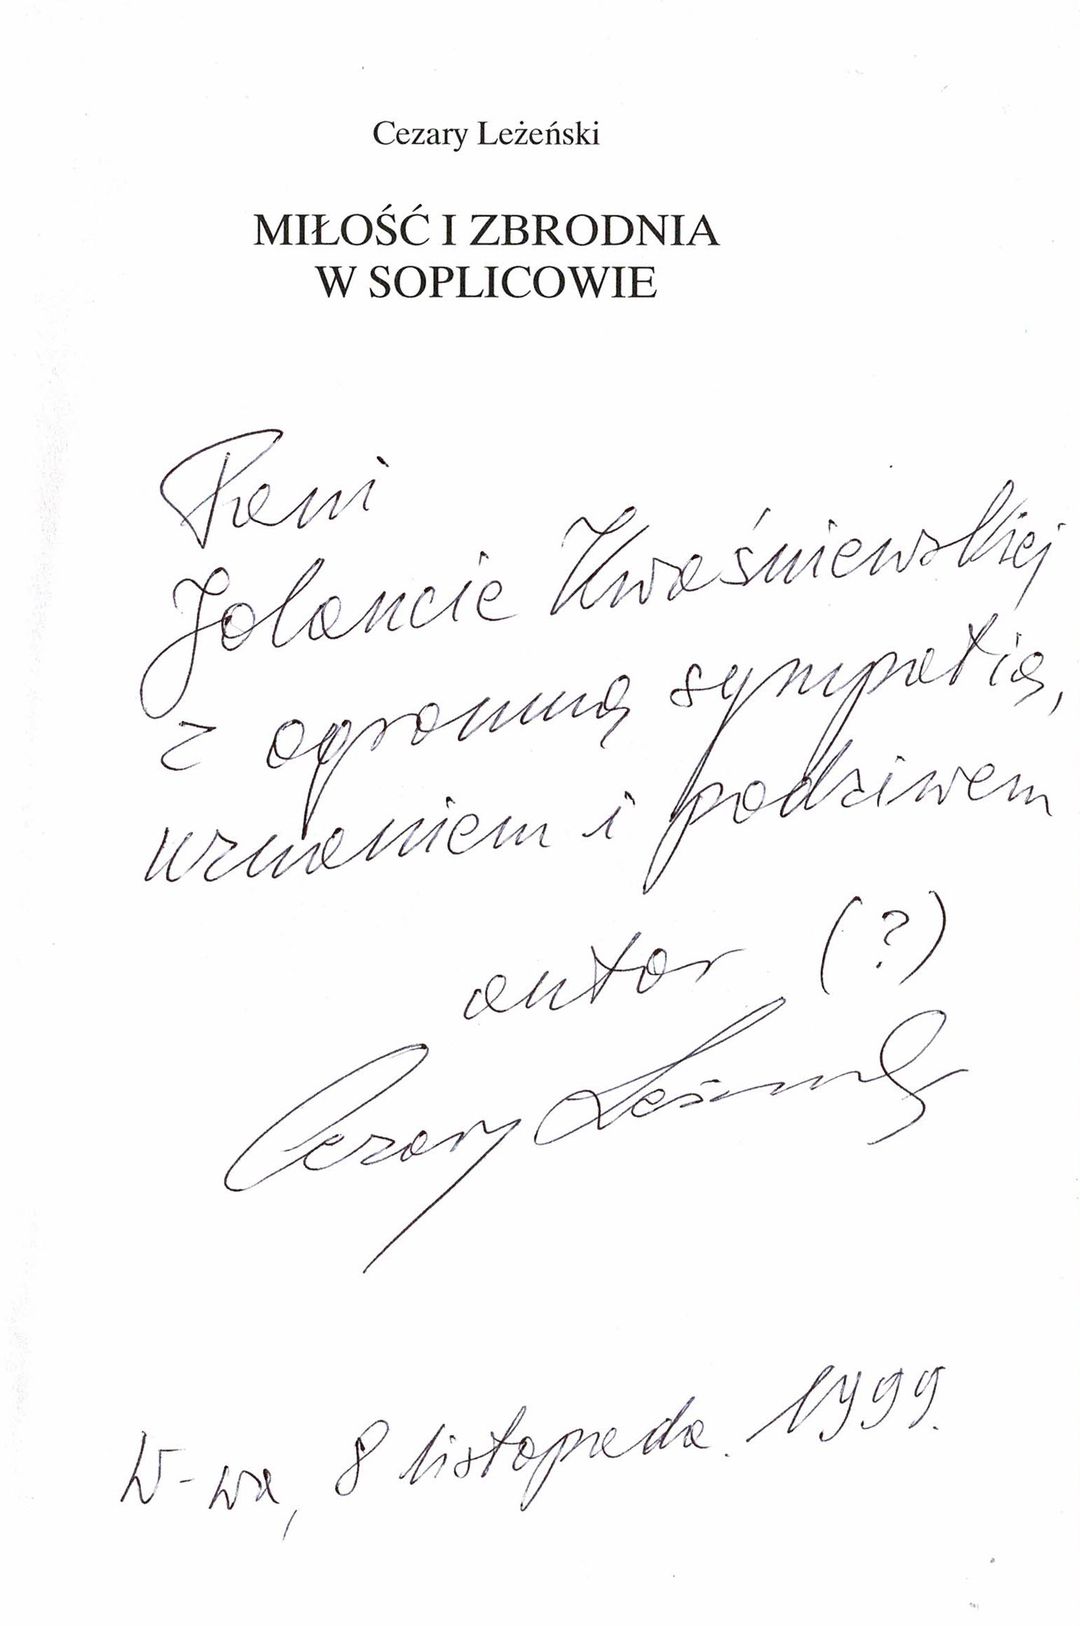 Cezary Leżeński
MIŁOŚĆ I ZBRODNIA
W SOPLICOWIE
Pani
Jolancie Kwaśniewskiej
z ogromną sympatią,
uznaniem i podziwem
autor (?)
Cezary Leżeński
W-wa, 8 listopada 1999.